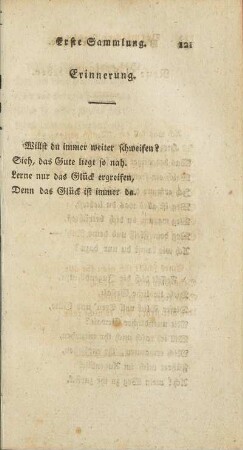 Erste Sammlung. 121
Erinnerung.
Willst du immer weiter schweifen?
Sieh, das Gute liegt so nah.
Lerne nur das Glück ergreifen,
Denn das Glück ist immer da.